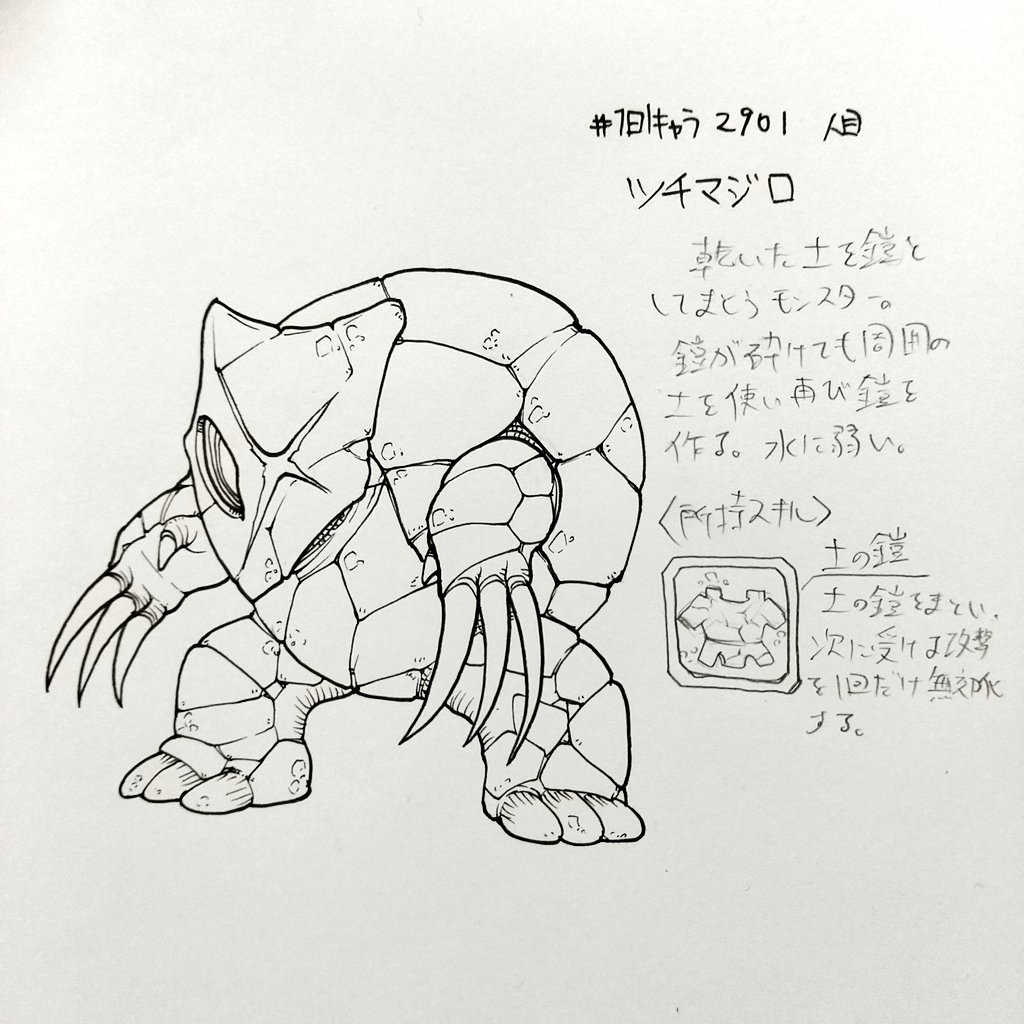 #1日1キャラ 2901 人目
ツチマジロ
乾いた土を鎧と
してまとうモンスター。
鎧が砕けても周囲の
土を使い再び鎧を
作る。水に弱い。
〈所持スキル〉
土の鎧
土の鎧をまとい、
次に受ける攻撃
を1回だけ無効化
する。